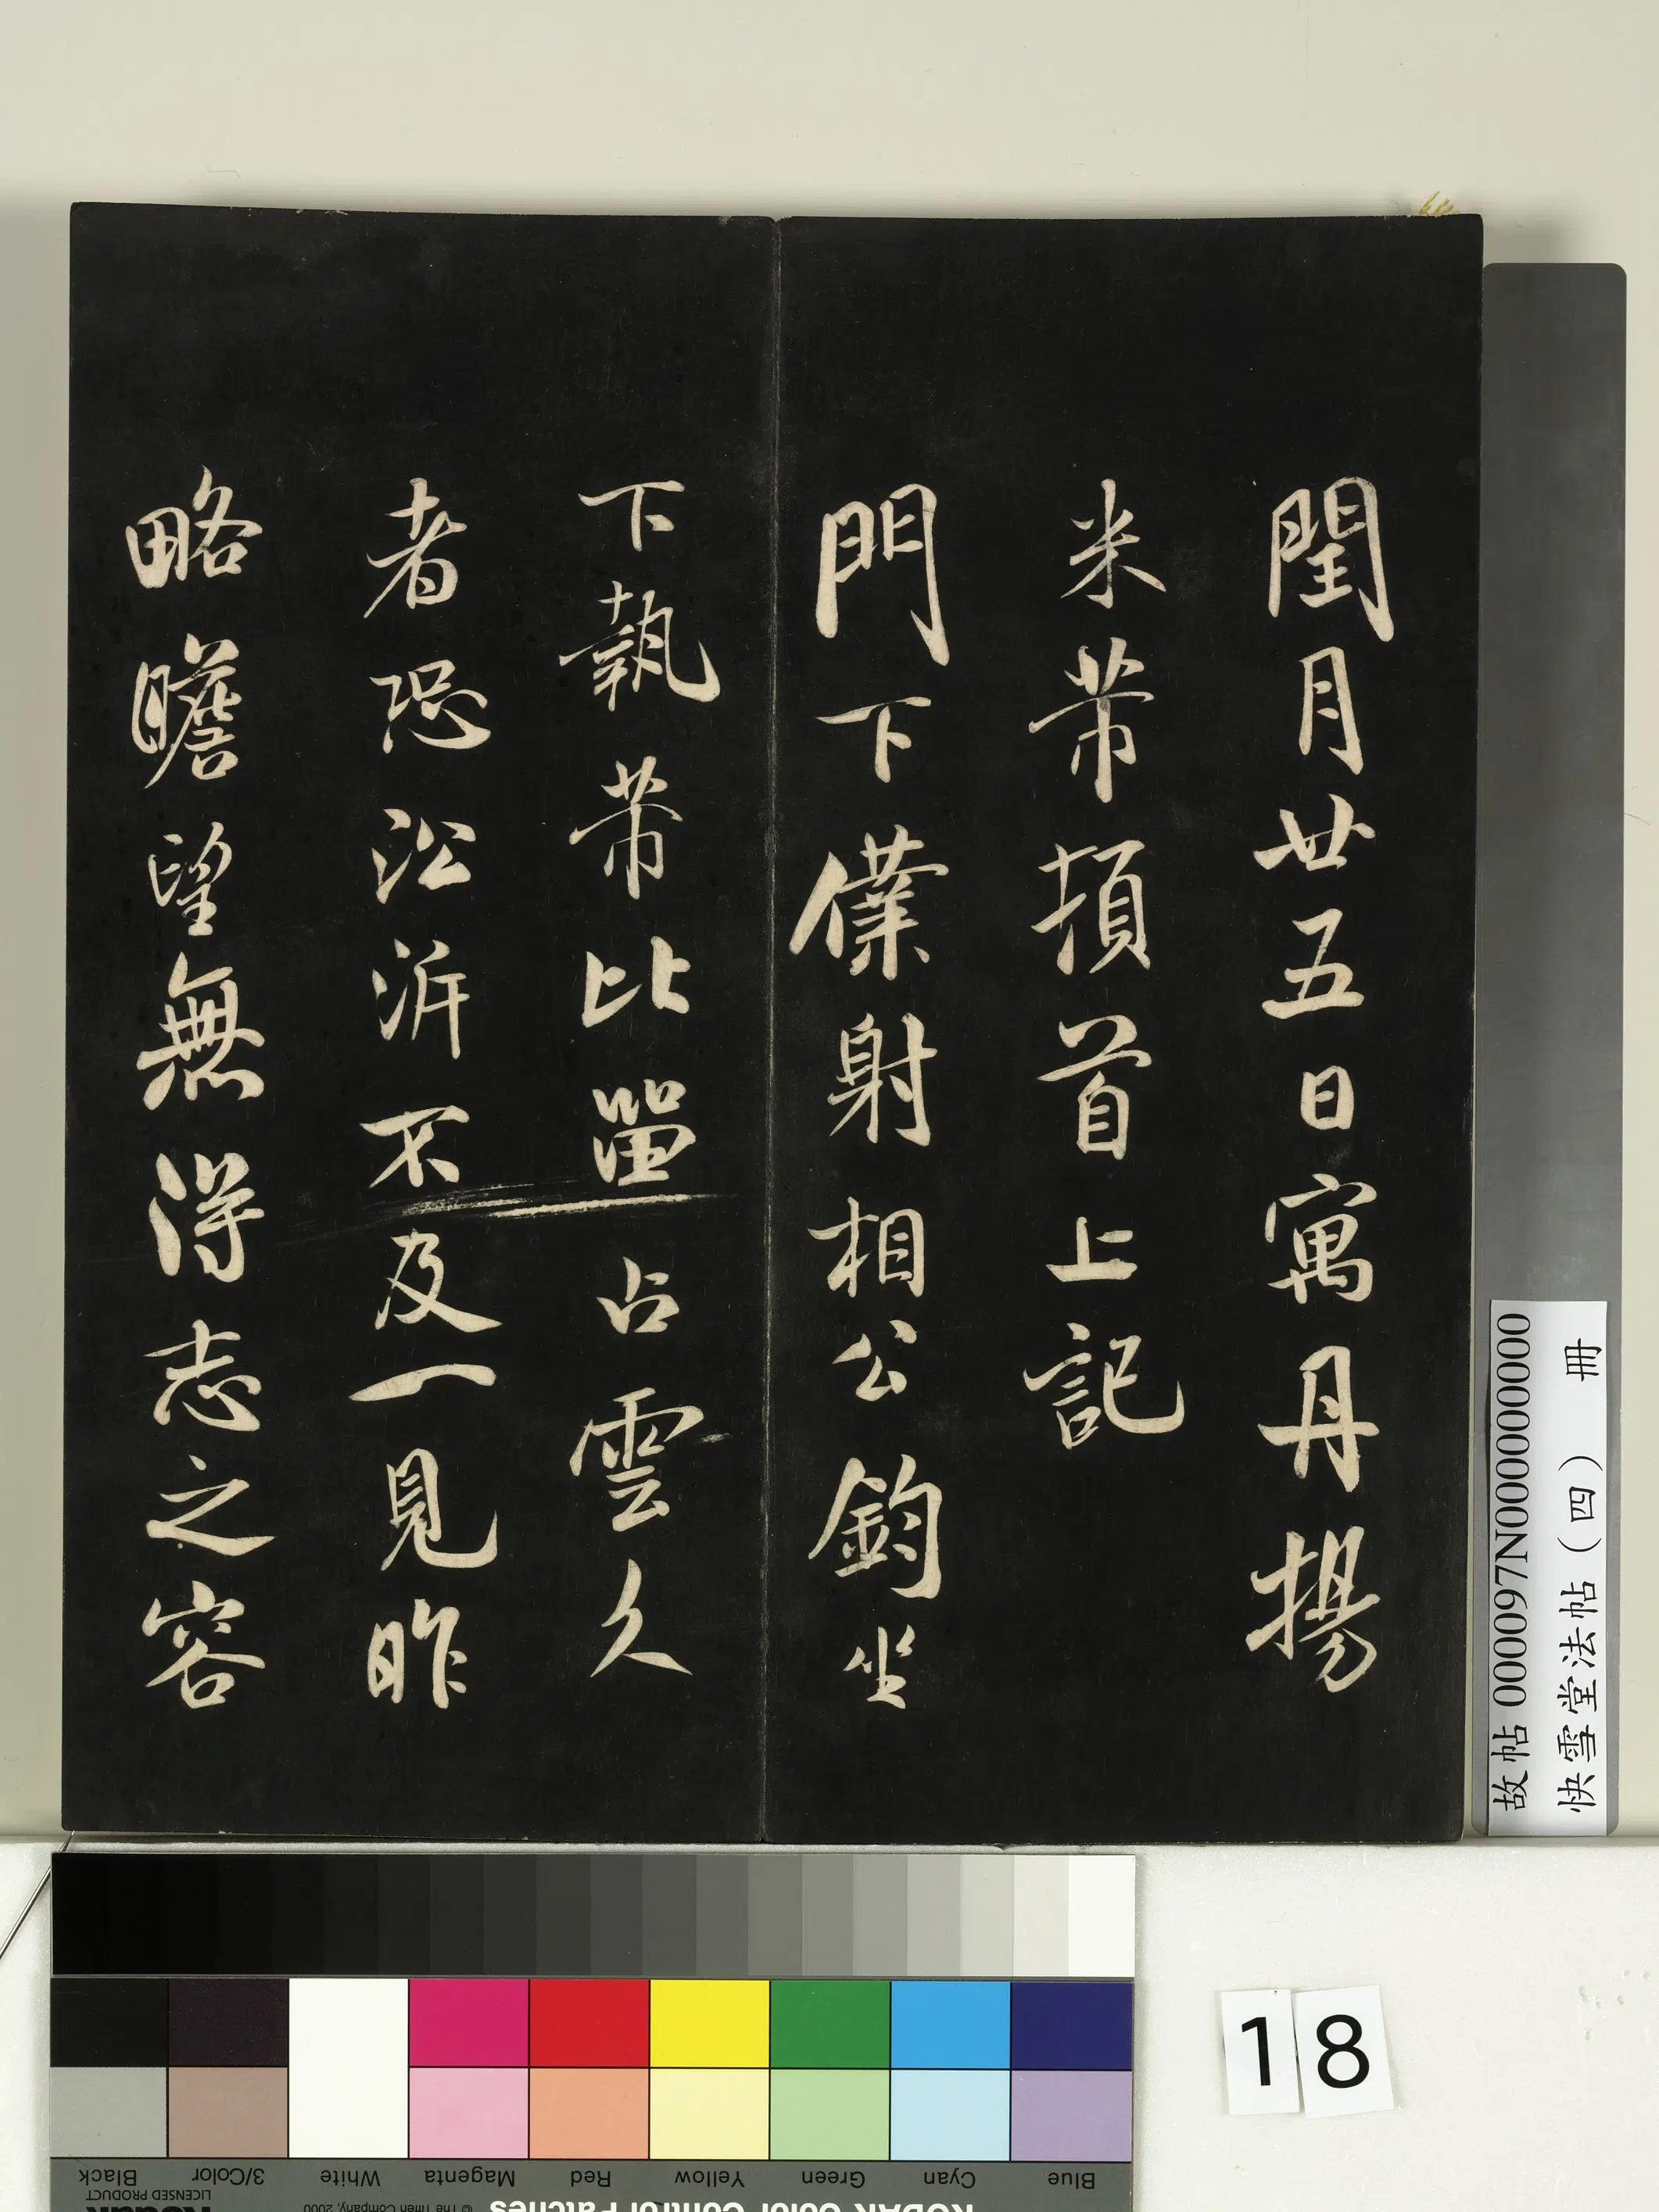 閏月廿五日寓丹揚
米芾頓首上記
門下僕射相公鈞坐
下執芾比留占雲久
者恐沿泝不及一見昨
略瞻望無得志之容
故帖 000097N000000000
快雪堂法帖(四) 冊
18
Black
3/Color
White
Magenta
Red
Yellow
Green
Cyan
Blue
LICENSED PRODUCT
Kodak
© The Tiffen Company, 2000
KODAK Color Control Patches